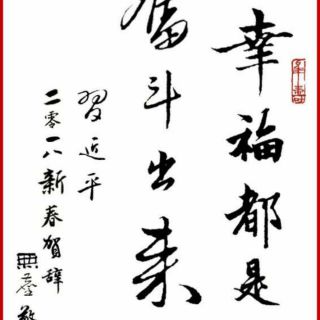 幸福都是
奮斗出来
習近平
二零一八新春賀辞